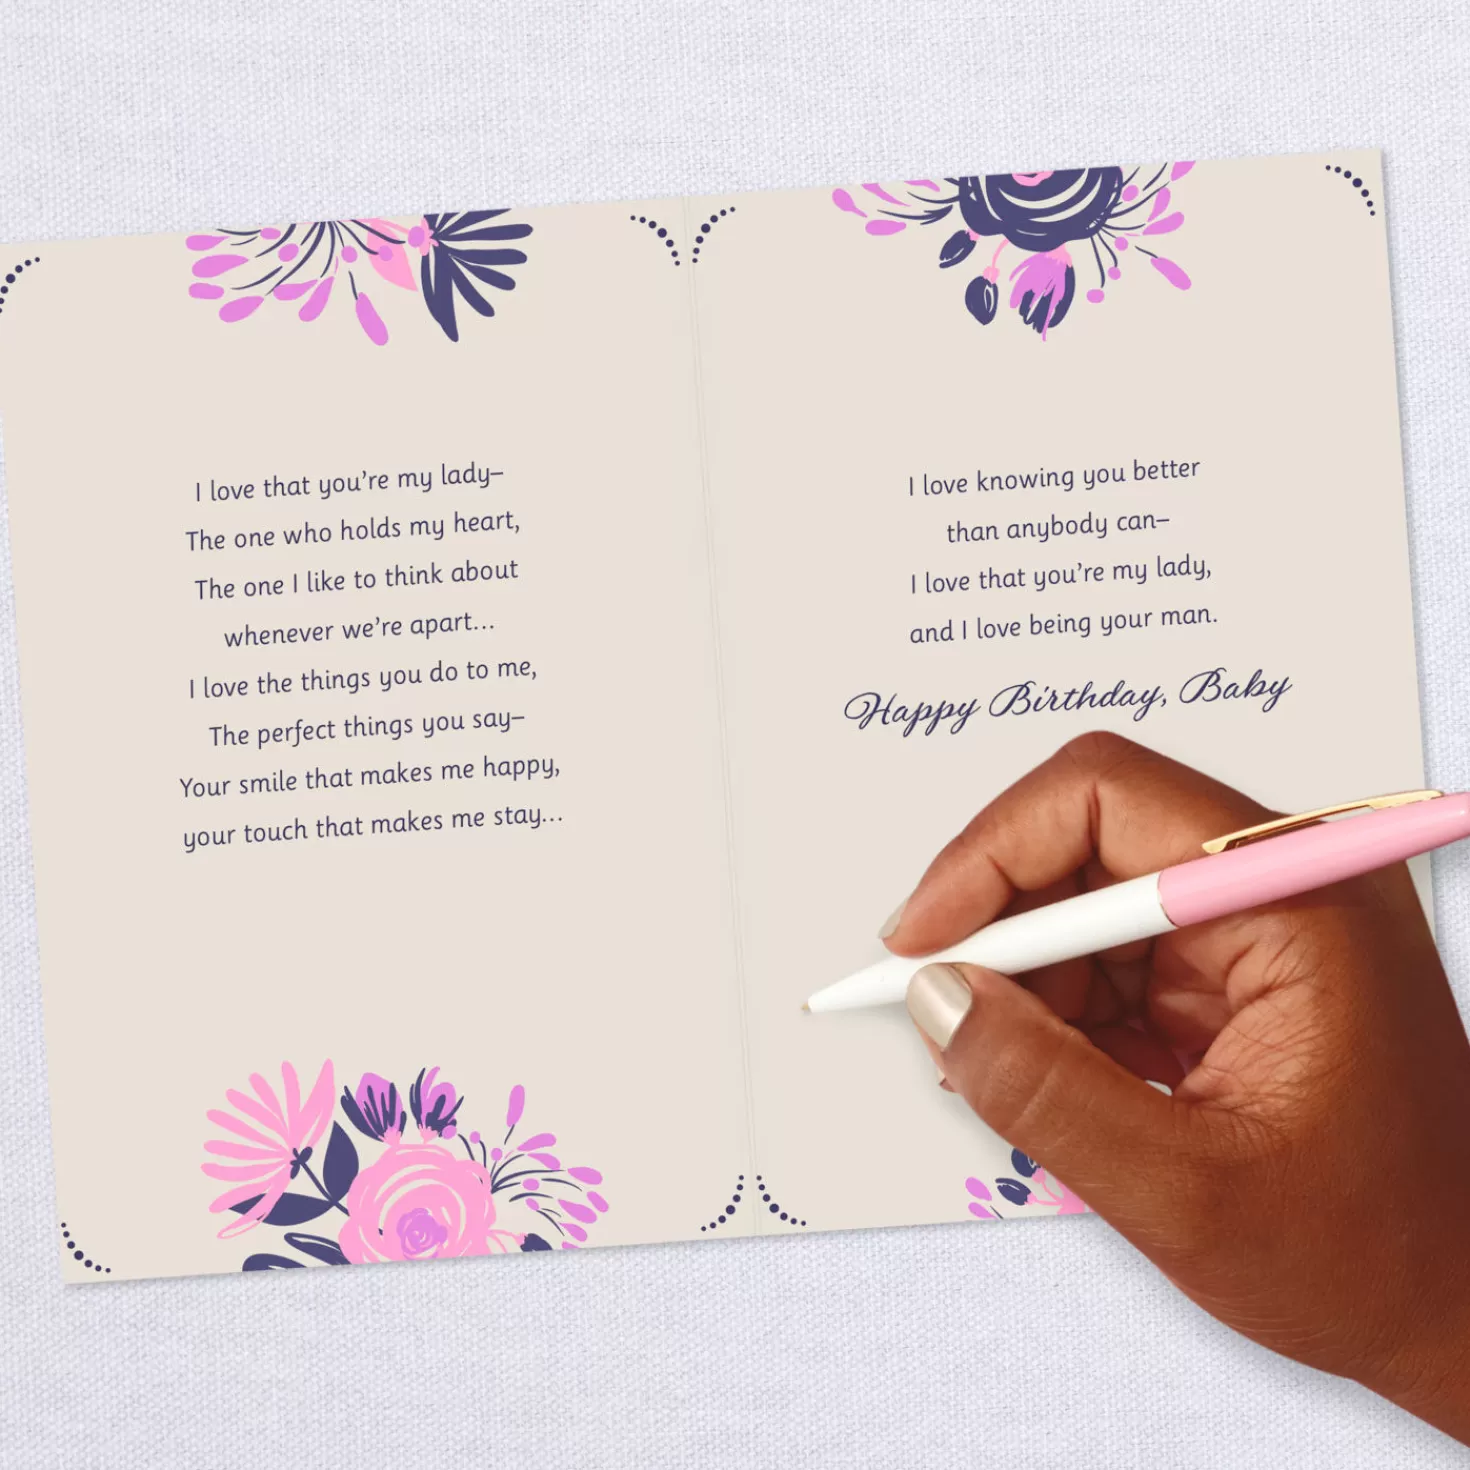 I love that you’re my lady–
The one who holds my heart,
The one I like to think about
whenever we’re apart...
I love the things you do to me,
The perfect things you say–
Your smile that makes me happy,
your touch that makes me stay...
I love knowing you better
than anybody can–
I love that you’re my lady,
and I love being your man.
Happy Birthday, Baby